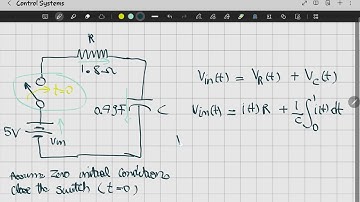 Control Systems
R
1.8Ω
t=0
0.49F
C
5V
Vin
Vin(t) = VR(t) + VC(t)
Vin(t) = i(t)R + 1/C ∫₀ᵗ i(t)dt
Assume Zero initial conditions
close the switch (t=0)